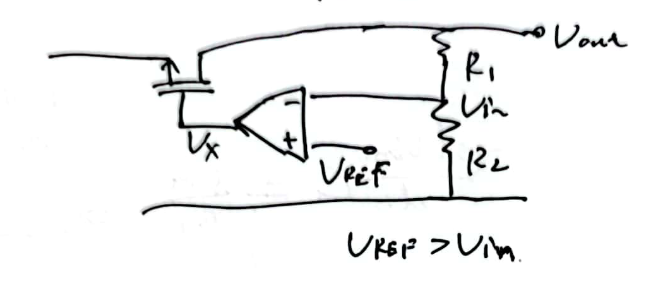 Vout
R1
Vin
-
+
Vx
VREF
R2
VREF > Vin.